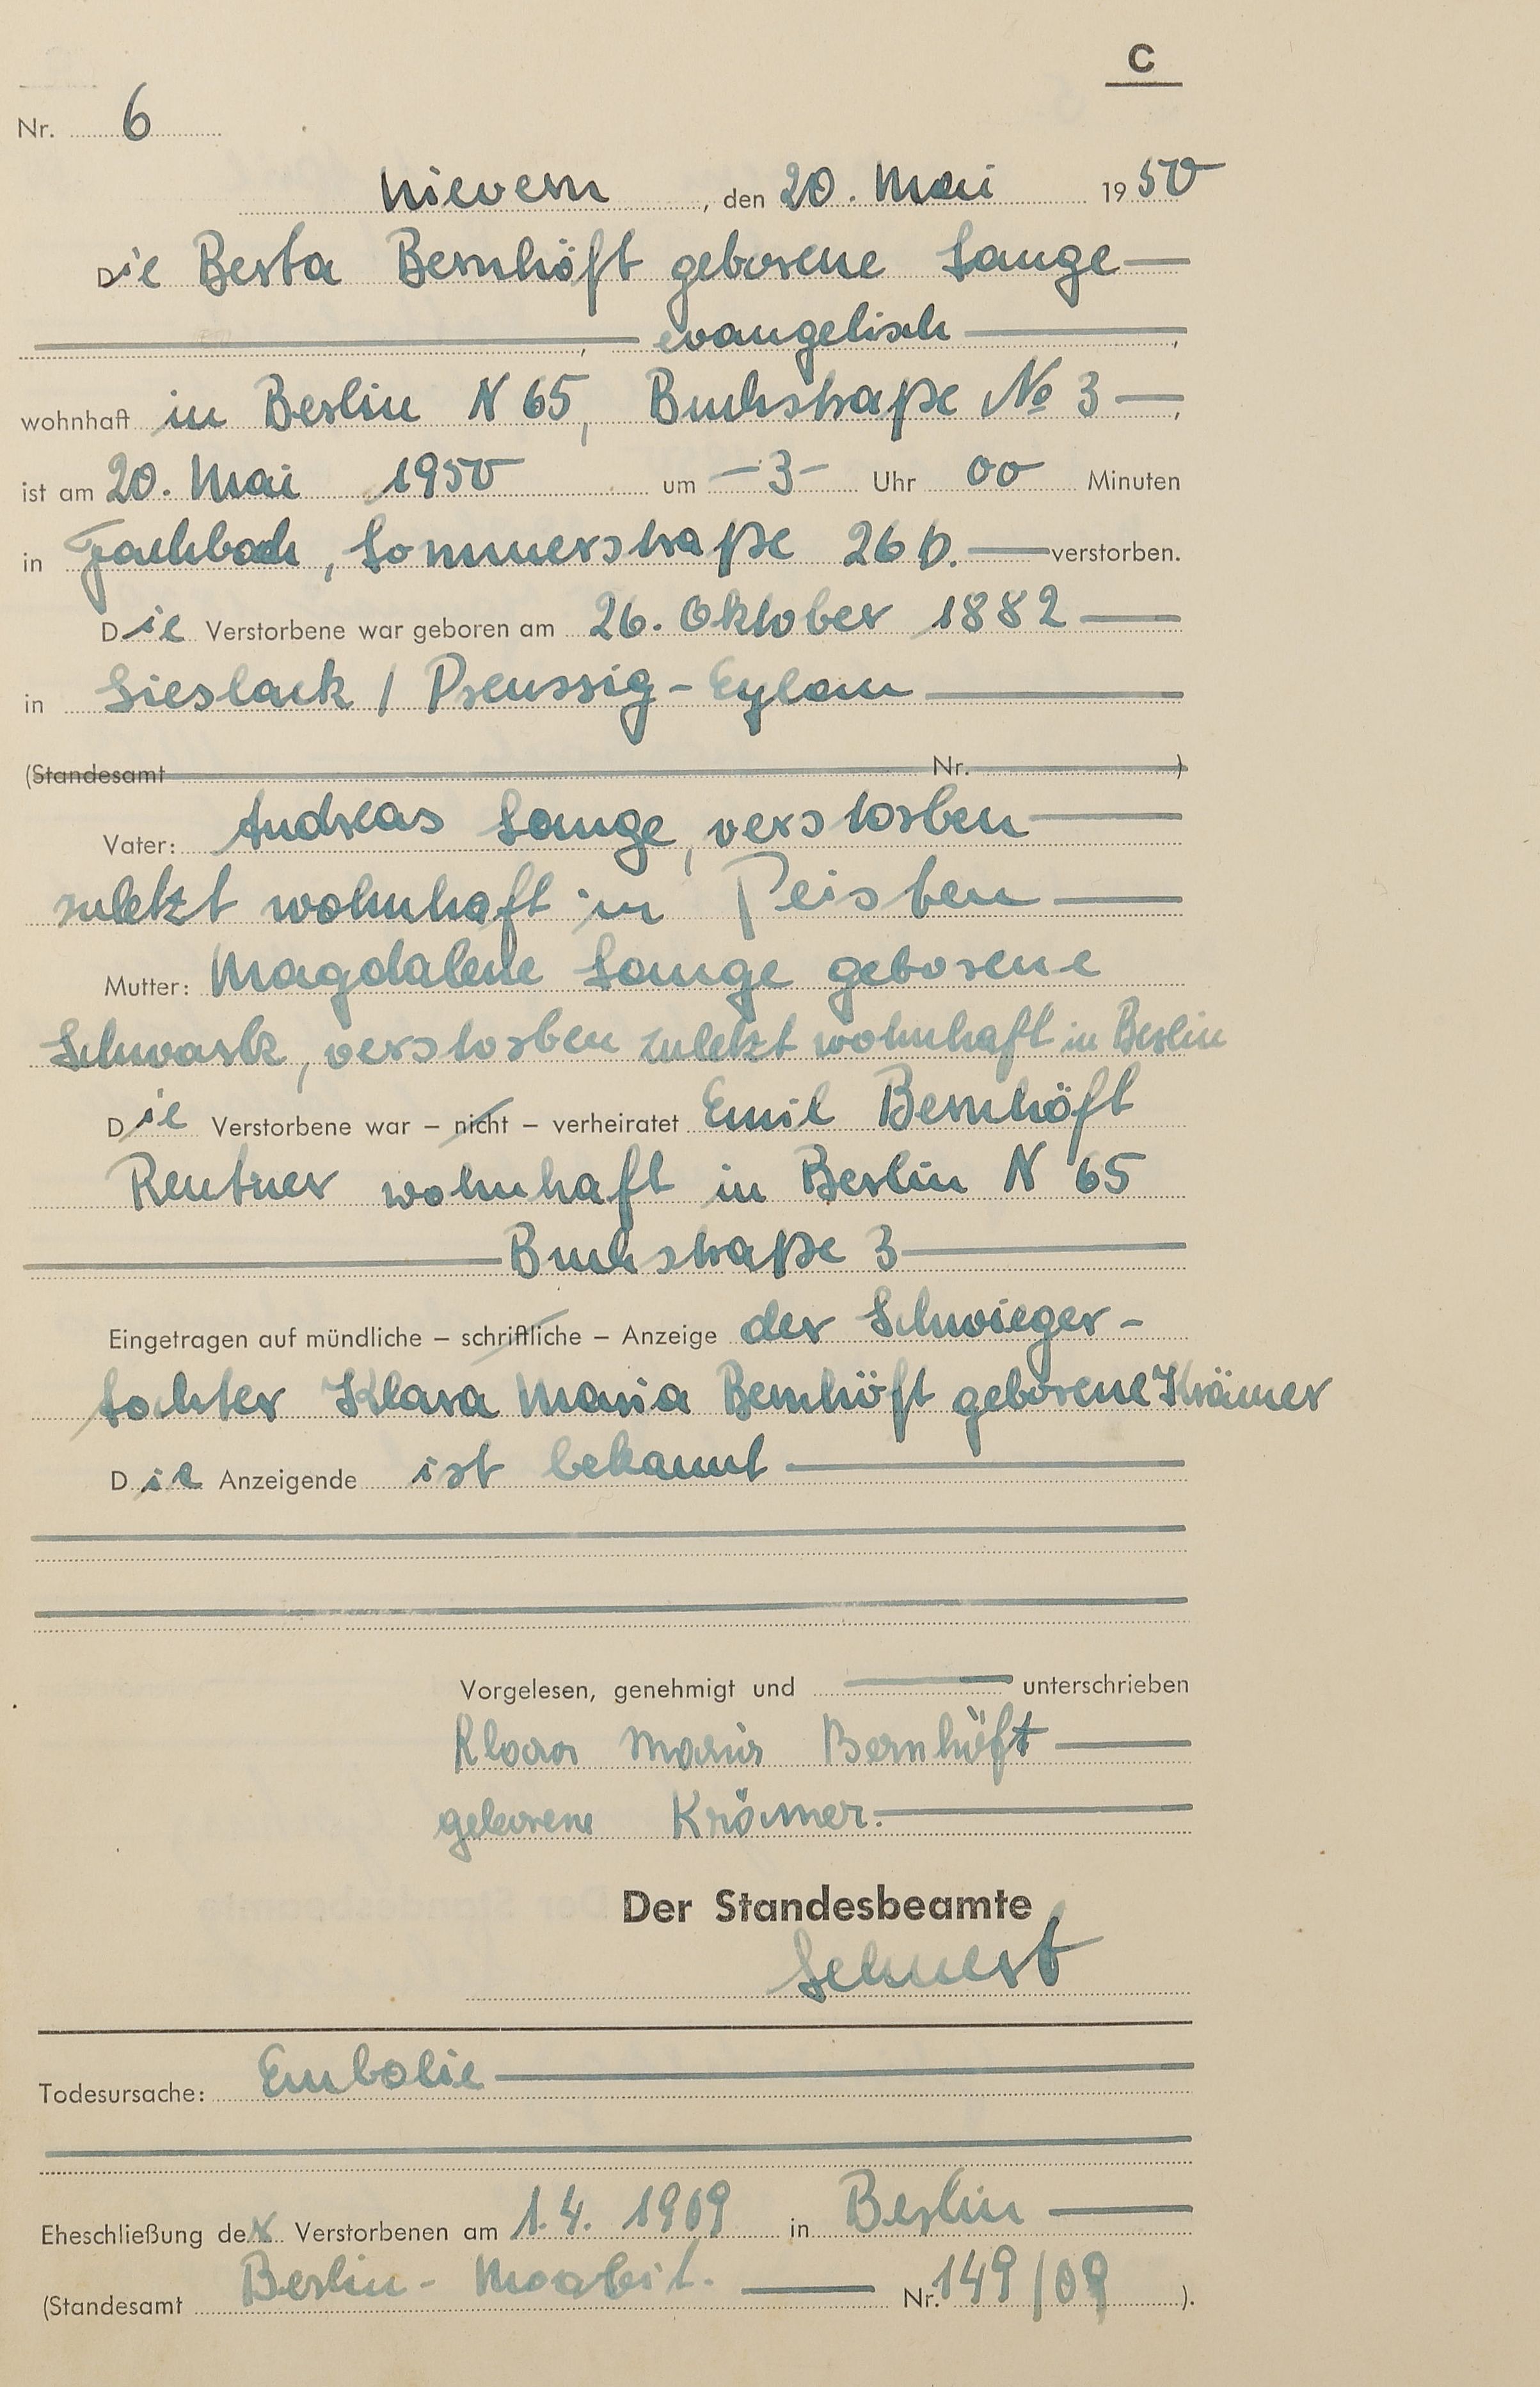 C
Nr. 6
Nievern, den 20. Mai 1950
Die Berta Bernhöft geborene Lange
evangelisch,
wohnhaft in Berlin N 65, Buchstraße No 3,
ist am 20. Mai 1950 um 3 Uhr 00 Minuten
in Fachbach, Sommerstraße 26 b. verstorben.
Die Verstorbene war geboren am 26. Oktober 1882
in Lieslack / Preussig-Eylau
(Standesamt Nr. )
Vater: Andreas Lange, verstorben
zuletzt wohnhaft in Peisten
Mutter: Magdalene Lange geborene
Schwartz, verstorben zuletzt wohnhaft in Berlin
Die Verstorbene war – nicht – verheiratet Emil Bernhöft
Rentner wohnhaft in Berlin N 65
Buchstraße 3
Eingetragen auf mündliche – schriftliche – Anzeige der Schwieger-
tochter Klara Maria Bernhöft geborene Krämer
Die Anzeigende ist bekannt
Vorgelesen, genehmigt und unterschrieben
Klara Maria Bernhöft
geborene Krämer.
Der Standesbeamte
Todesursache: Embolie
Eheschließung der Verstorbenen am 1.4. 1909 in Berlin
(Standesamt Berlin-Moabit. Nr. 149/09 ).